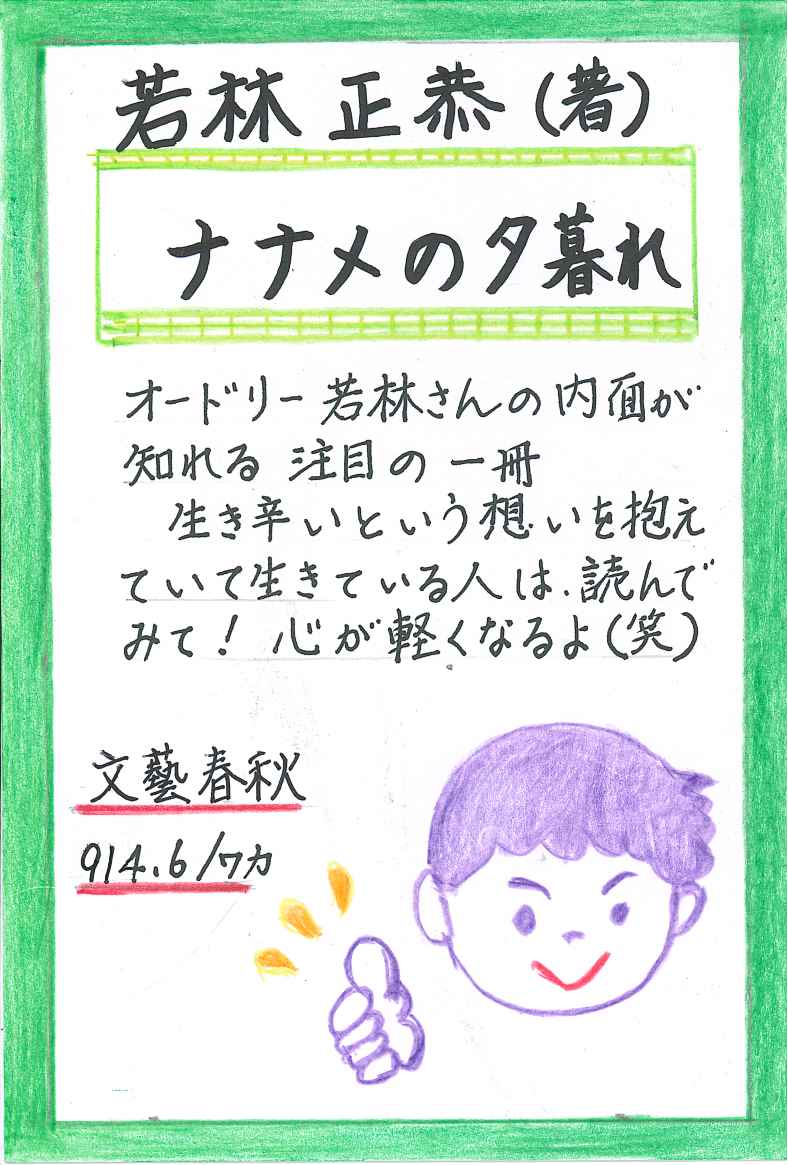 若林 正恭(著)
ナナメの夕暮れ
オードリー若林さんの内面が
知れる 注目の一冊
生き辛いという想いを抱え
ていて生きている人は、読んで
みて! 心が軽くなるよ(笑)
文藝春秋
914.6/ワカ